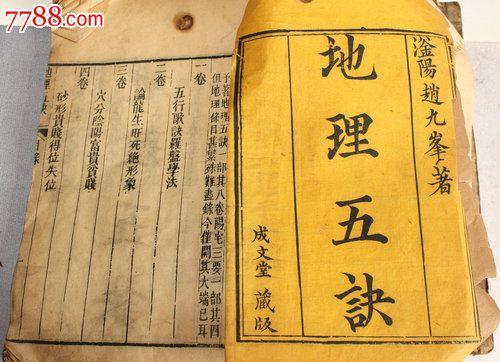 7788.com
滏陽趙九峯著
地理五訣
成文堂 藏版
予著地理五訣一部其八卷陽宅三要一部其四
但地理條目甚繁殊難盡錄今僅開其大端已耳
一卷
五行歌訣羅盤學法
二卷
論龍生旺死絕形象
三卷
穴分陰陽富貴貧賤
四卷
砂形貴賤得位失位
地理五訣 目錄